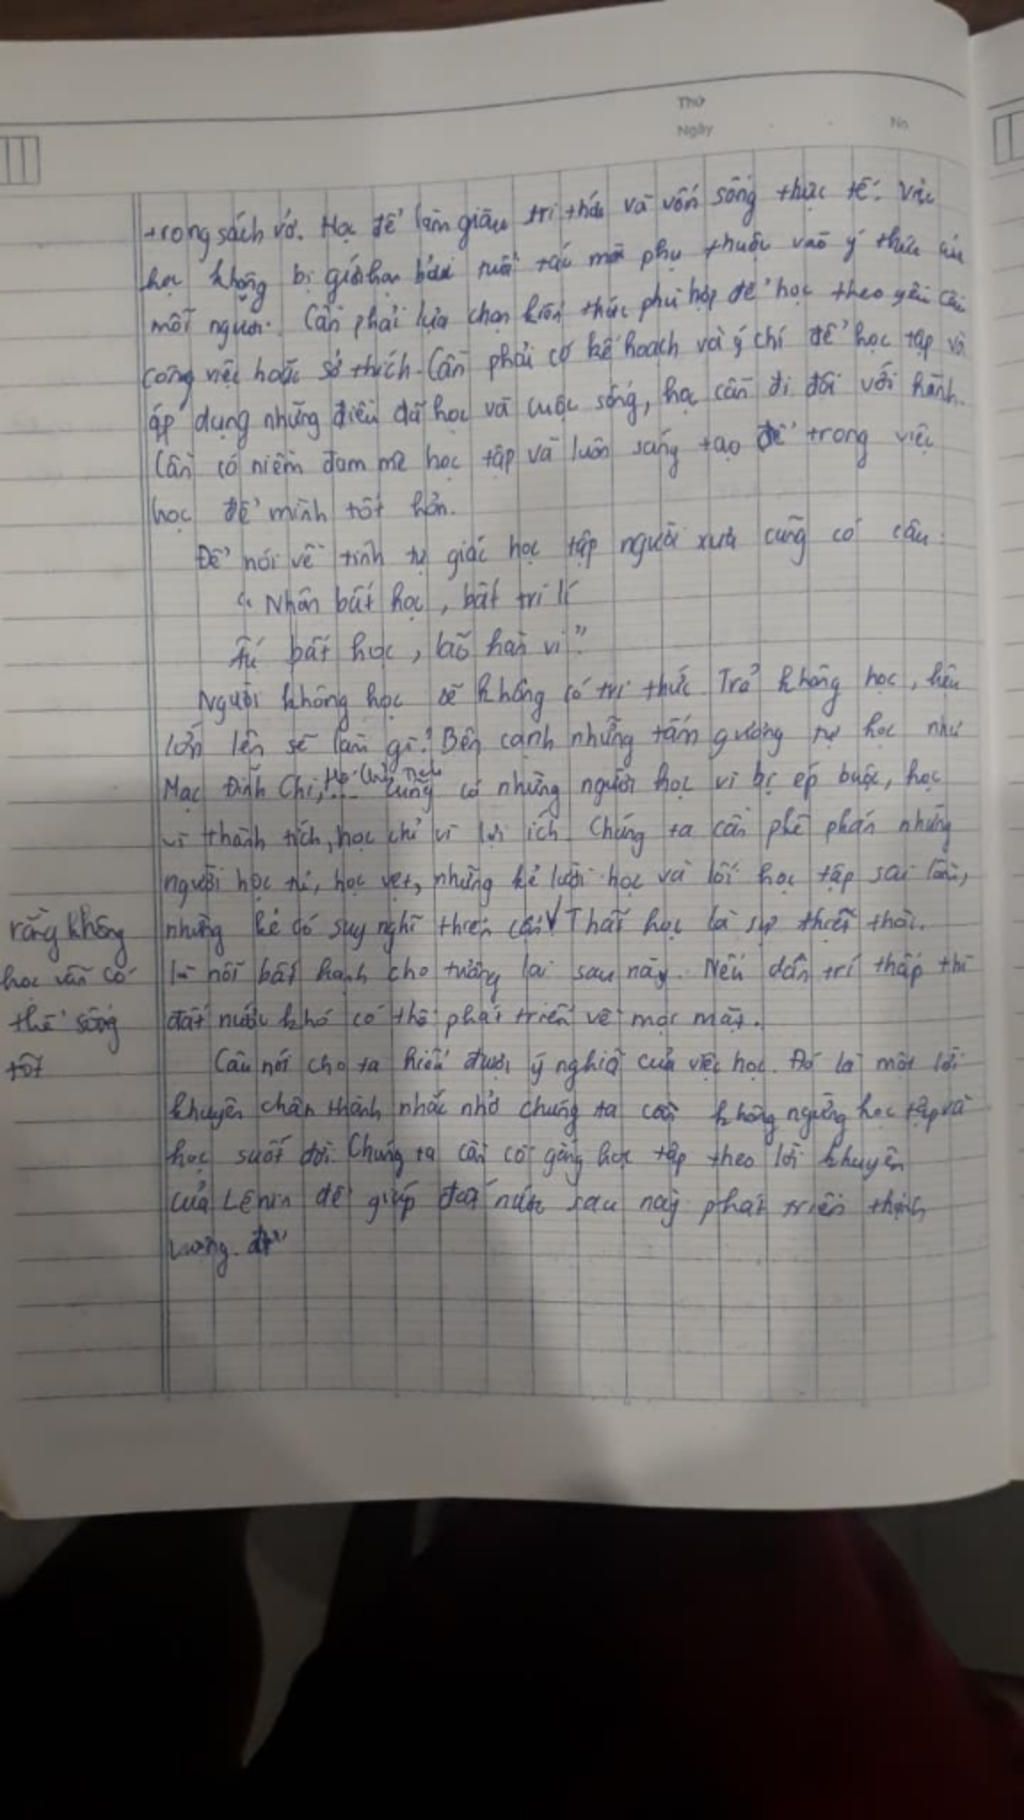 Thứ
Ngày
No
trong sách vở. Học để làm giàu tri thức và vốn sống thực tế. Việc
học không bị giới hạn bởi tuổi tác mà phụ thuộc vào ý thức của
mỗi người. Cần phải lựa chọn kiến thức phù hợp để học theo yêu cầu
công việc hoặc sở thích. Cần phải có kế hoạch và ý chí để học tập và
áp dụng những điều đã học và cuộc sống, học cần đi đôi với hành.
Cần có niềm đam mê học tập và luôn sáng tạo để trong việc
học để mình tốt hơn.
Để nói về tính tự giác học tập người xưa cũng có câu:
"Nhân bất học, bất tri lí
Ấu bất học, lão hà vi"
Người không học sẽ không có tri thức. Trẻ không học,
lớn lên sẽ làm gì? Bên cạnh những tấm gương tự học như
Mạc Đĩnh Chi, Hồ Chí Minh... cũng có những người học vì bị ép buộc, học
vì thành tích, học chỉ vì lợi ích. Chúng ta cần phê phán những
người học tủ, học vẹt, những kẻ lười học và lối học tập sai lầm,
những kẻ có suy nghĩ thiển cận V Thất học là sự thiệt thòi.
rằng không
học vẫn có
thể sống
tốt
là nỗi bất hạnh cho tương lai sau này. Nếu dân trí thấp thì
đất nước khó có thể phát triển về mọi mặt.
Câu nói cho ta hiểu được ý nghĩa của việc học. Đó là một lời
khuyên chân thành nhắc nhở chúng ta cần không ngừng học tập và
học suốt đời. Chúng ta cần cố gắng học tập theo lời khuyên
của Lênin để giúp đất nước sau này phát triển thịnh
vượng.